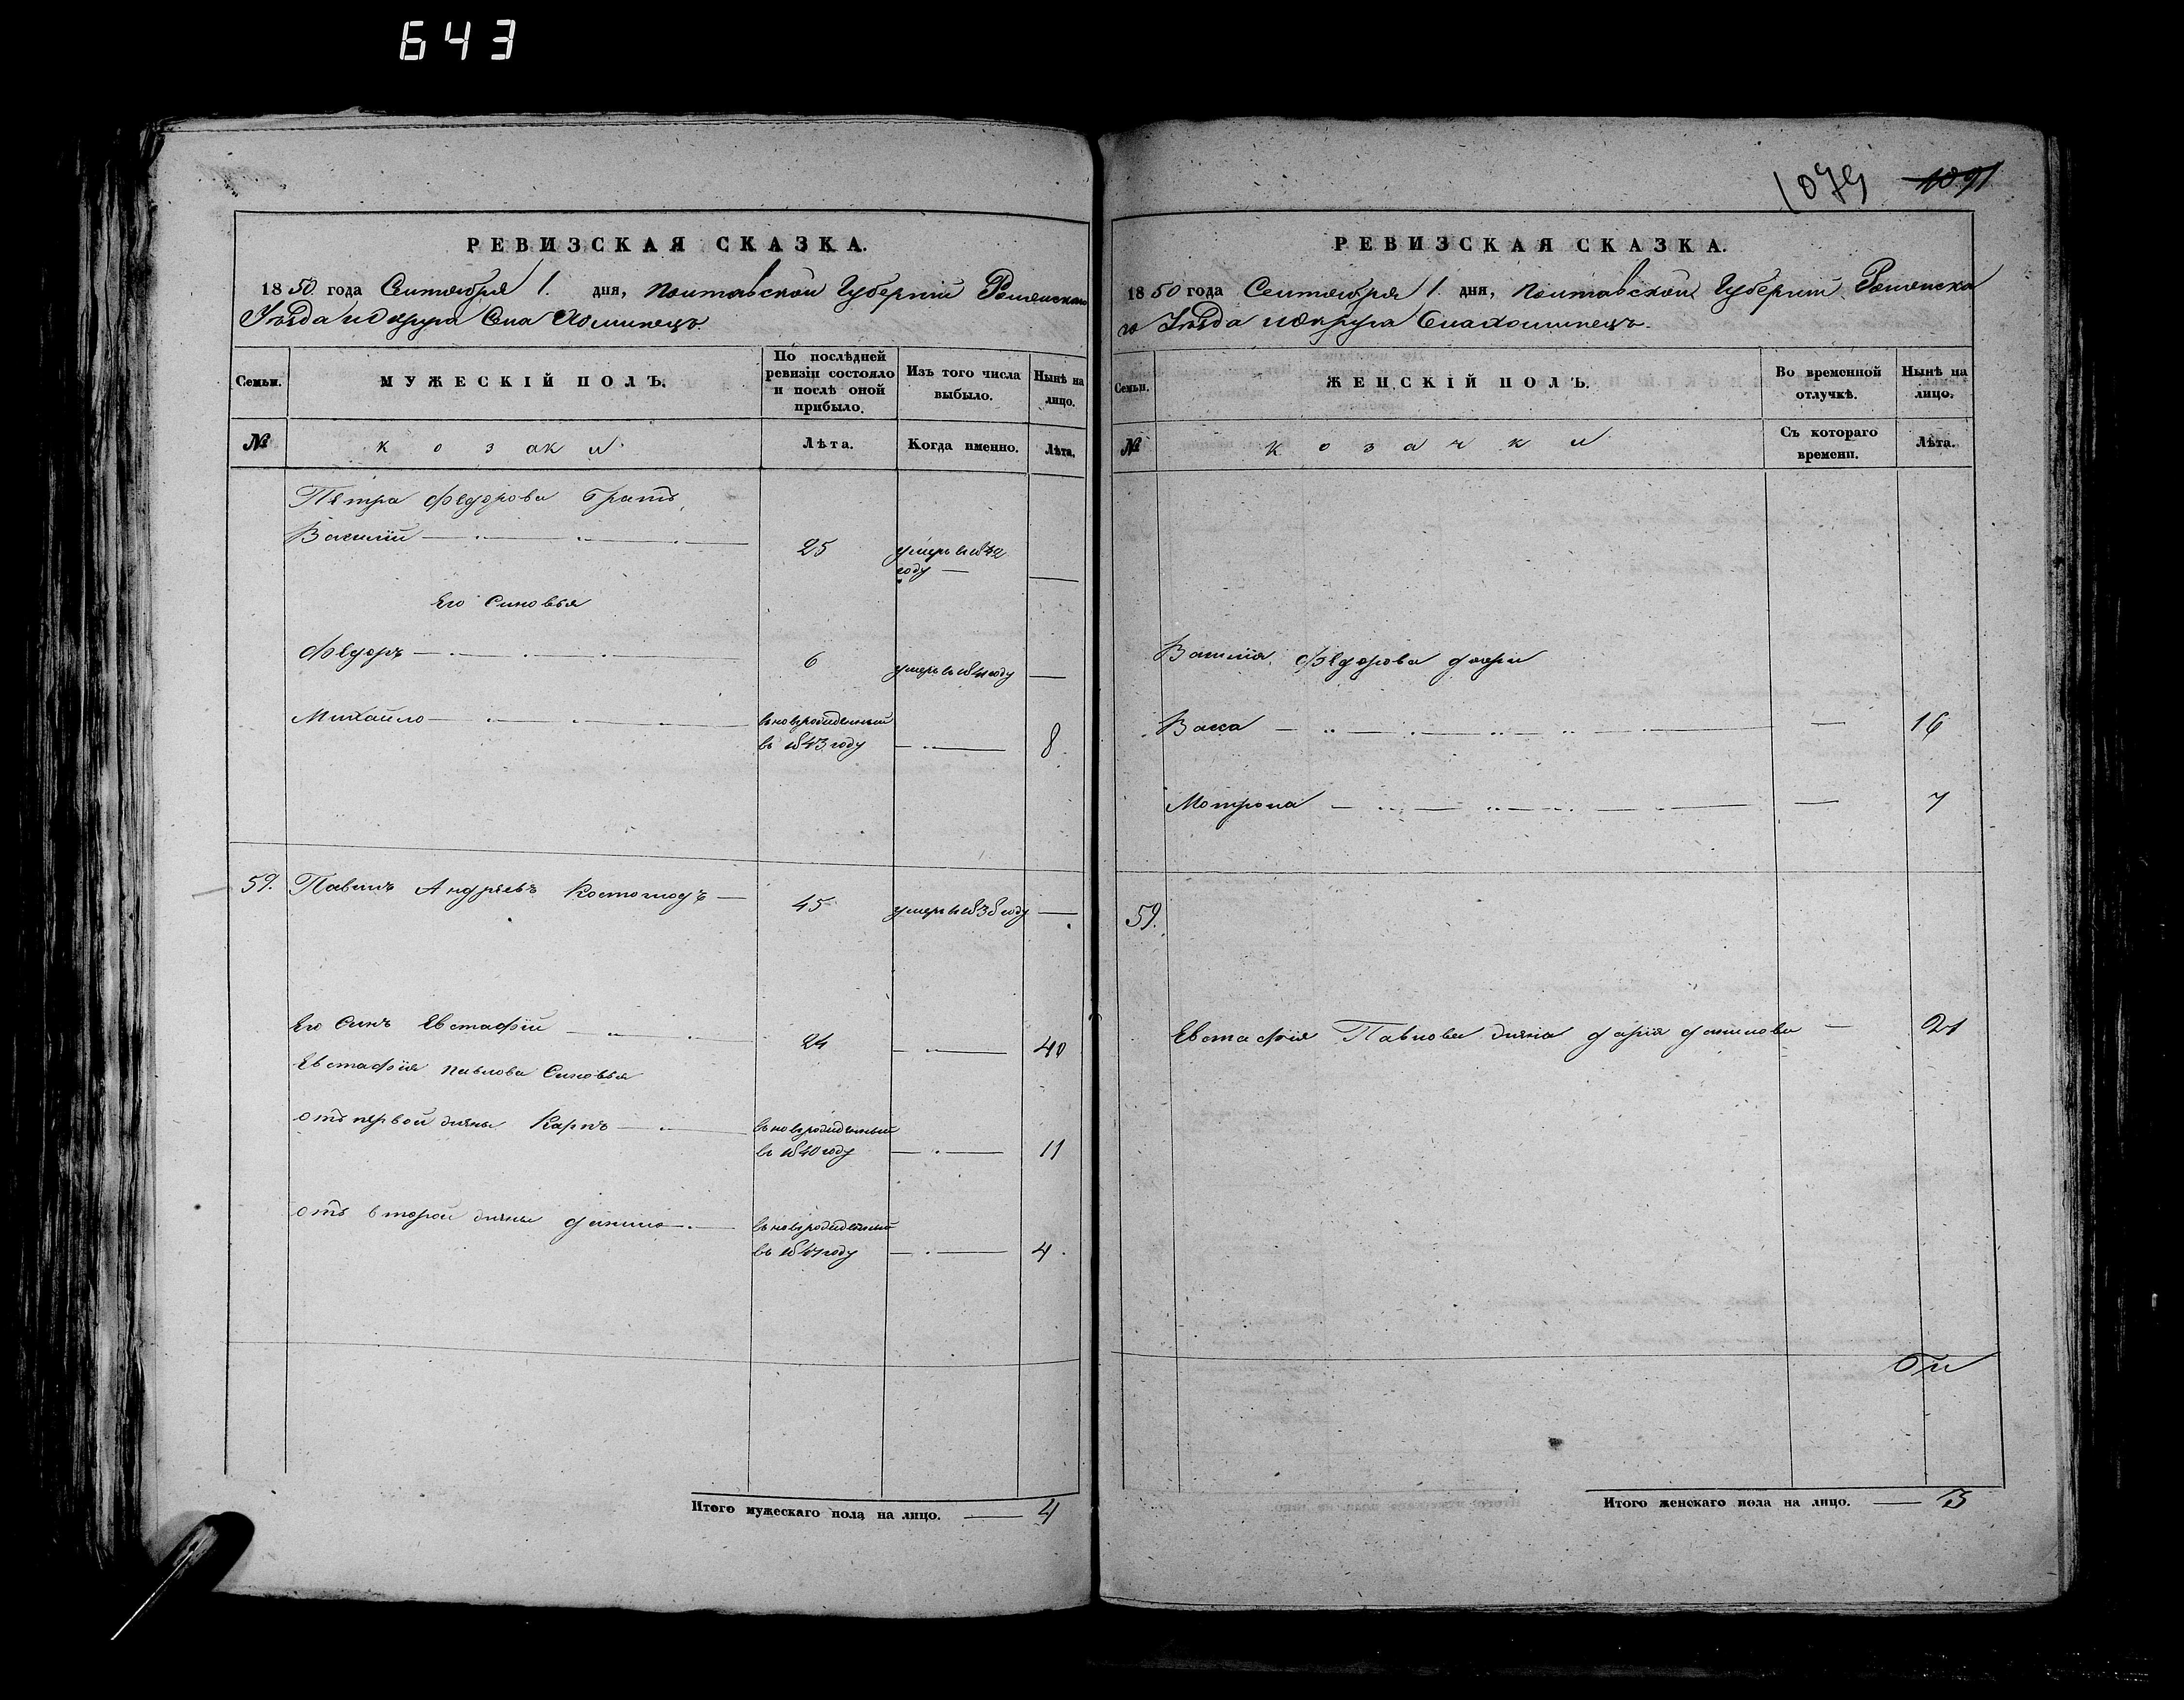 643
РЕВИЗСКАЯ СКАЗКА.
1850 года Сентября 1. дня, Полтавской Губернии Роменскаго
Уѣзда и Округа Села Хоминецъ.
Семьи.
МУЖЕСКІЙ ПОЛЪ.
По послѣдней ревизіи состояло и послѣ оной прибыло.
Изъ того числа выбыло.
Нынѣ на лицо.
№
козаки
Лѣта.
Когда именно.
Лѣта.
Петра Федорова братъ,
Василій 25 умеръ в 1842
году —
Его Сыновья
Федоръ 6 умеръ въ 1841 году —
Михайло вновьрожденный
въ 1843 году 8
59. Павелъ Андрѣевъ Костоглодъ — 45 умеръ в 1838 году —
Его Сынъ Евстафій 24 40
Евстафія Павлова Сыновья
отъ первой жены Карпъ вновьрожденный
въ 1840 году 11
отъ второй жены Данило вновьрожденный
въ году 4
Итого мужескаго пола на лицо. — 4
1079 1091
РЕВИЗСКАЯ СКАЗКА.
1850 года Сентября 1. дня, Полтавской Губернии Роменска
го Уѣзда и Округа Села Хоминецъ.
Семьи.
ЖЕНСКІЙ ПОЛЪ.
Во временной отлучкѣ.
Нынѣ на лицо.
№
козачки
Съ котораго времени.
Лѣта.
Василія Федорова дочери
Васса — 16
Мотрона — 7
59.
Евстафія Павлова жена Дарія Данилова — 21
Итого женскаго пола на лицо. — 3